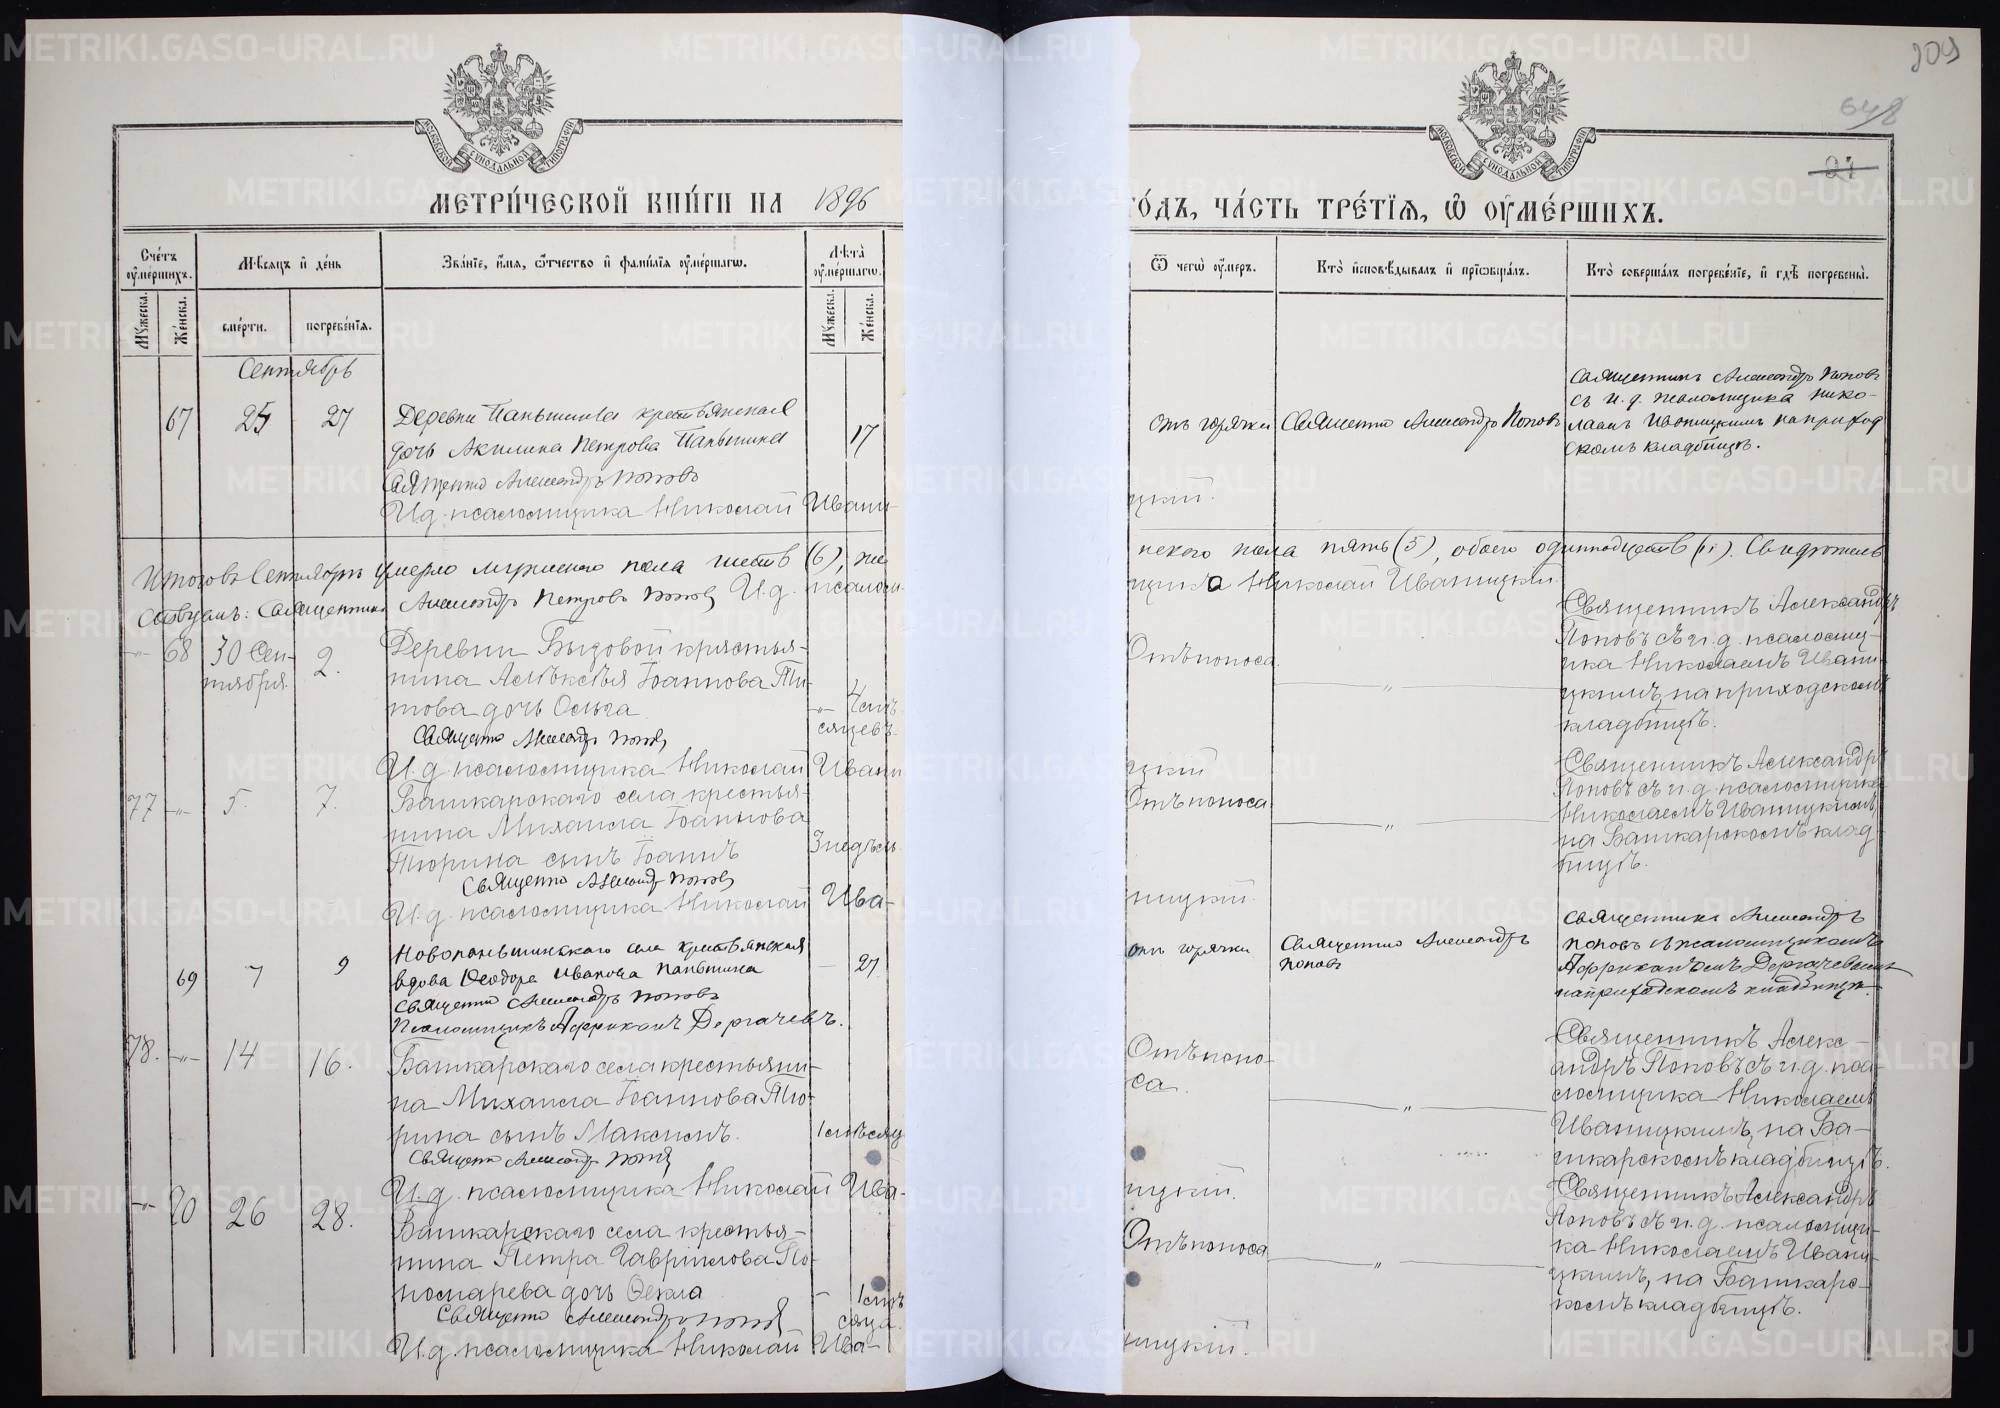 МОСКОВСКОЙ СУНОДАЛЬНОЙ ТИПОГРАФІИ
МОСКОВСКОЙ СУНОДАЛЬНОЙ ТИПОГРАФІИ
209
648
21
МЕТРИ́ЧЕСКОЙ КНИ́ГИ НА 1896
ГО́ДЪ, ЧА́СТЬ ТРЕ́ТЇѦ, Ѡ ОУМЕ́РШИХЪ.
Сче́тъ оумершихъ.
Мужеска.
Же́нска.
Мѣсяцъ и де́нь
сме́рти.
погребе́нїя.
Зва́нїе, и́мя, о́тчество и фами́лїя оуме́ршагѡ.
Лѣ́та оуме́ршагѡ.
Мужеска.
Же́нска.
Ѿ чегѡ̀ оу́меръ.
Кто̀ исповѣ́дывалъ и прїѡбща́лъ.
Кто̀ соверша́лъ погребе́нїе, и гдѣ̀ погребены̀.
Сентябрь
67 25 27
Деревни Паньшина крестьянская
дочь Акилина Петрова Паньшина
17
Священно Александръ Поповъ
И. д. псаломщика Николай Ивани-
цкій.
отъ горячки
Священно Александръ Поповъ
Священникъ Александръ Поповъ
съ и. д. псаломщика Нико-
лаемъ Иваницкимъ на приход
скомъ кладбищѣ.
Итого въ Сентябрѣ умерло мужескаго пола шесть (6), же
нского пола пять (5), обоего одиннадцать (11). Свидѣтель
ствуемъ: Священникъ Александръ Петровъ Поповъ И. д. псалом-
щика Николай Иваницкій
-"- 68 30 Сен-
тября. 2.
Деревни Быговой крестья-
нина Алѣксѣя Іоаннова Ти-
това дочь Ольга
-"- 4 мѣ-
сяцевъ.
Священно Александръ Поповъ
И. д. псаломщика Николай Ивани
цкій
Отъ поноса.
"
Священникъ Александръ
Поповъ съ и. д. псаломщи-
ка Николаемъ Ивани-
цкимъ, на приходскомъ
кладбищѣ.
77 -"- 5. 7.
Башкарскаго села крестья-
нина Михаила Іоаннова
Тюрина сынъ Іоаннъ
3 недѣль.
Священно Александръ Поповъ
И. д. псаломщика Николай Ива-
ницкій.
Отъ поноса.
"
Священникъ Александръ
Поповъ съ и. д. псаломщика
Николаемъ Иваницкимъ,
на Башкарскомъ клад-
бищѣ.
69 7 9
Новопаньшинскаго села крестьянская
вдова Ѳеодора Иванова Паньшина
— 27
Священно Александръ Поповъ
Псаломщикъ Африканъ Дергачевъ.
отъ горячки
Священно Александръ
Поповъ
Священникъ Александръ
Поповъ съ псаломщикомъ
Африканомъ Дергачевымъ
на приходскомъ кладбищѣ.
78. -"- 14 16.
Башкарскаго села крестьяни-
на Михаила Іоаннова Тю-
рина сынъ Максимъ.
1 мѣсяц
Священно Александръ Поповъ
И. д. псаломщика Николай Ива-
ицкій.
Отъ поно-
са.
"
Священникъ Алекс-
андръ Поповъ съ и. д. пса-
ломщика Николаемъ
Иваницкимъ, на Ба-
шкарскомъ кладбищѣ.
-"- 70 26 28.
Башкарскаго села крестья-
нина Петра Гаврилова По-
номарева дочь Ѳекла
- 1 мѣ-
сяца.
Священно Александръ Поповъ
И. д. псаломщика Николай Ива-
ницкій.
Отъ поноса
"
Священникъ Александръ
Поповъ съ и. д. псаломщи-
ка Николаемъ Ивани-
цкимъ, на Башкарс-
комъ кладбищѣ.
METRIKI.GASO-URAL.RU